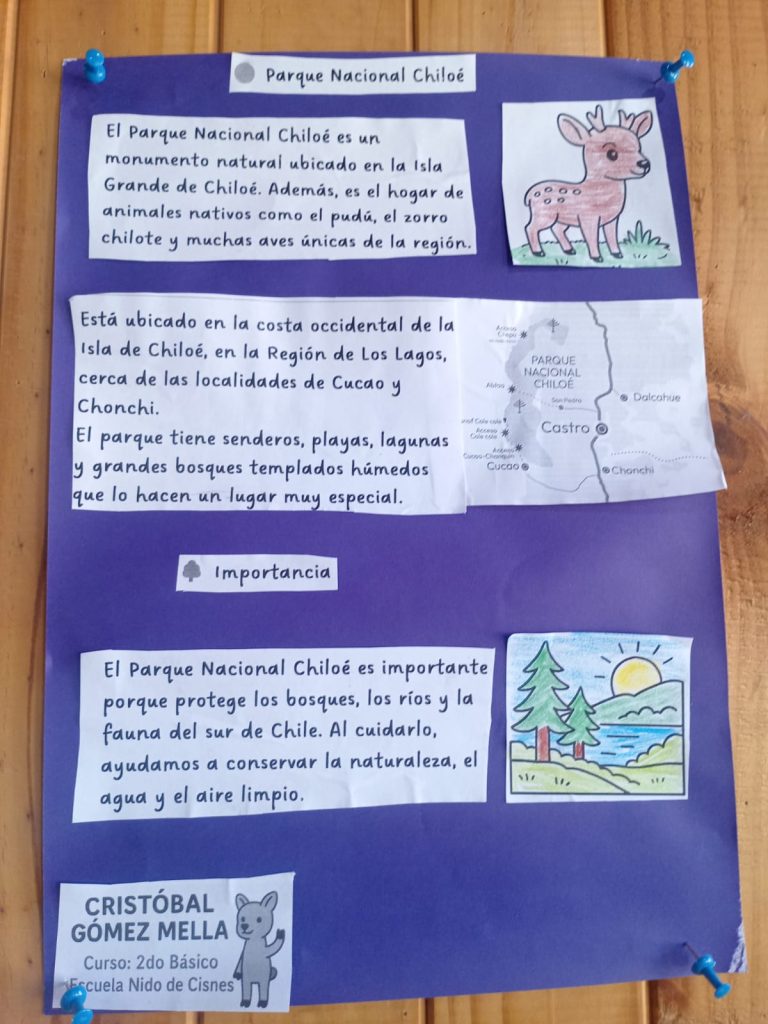 Parque Nacional Chiloé
El Parque Nacional Chiloé es un
monumento natural ubicado en la Isla
Grande de Chiloé. Además, es el hogar de
animales nativos como el pudú, el zorro
chilote y muchas aves únicas de la región.
Está ubicado en la costa occidental de la
Isla de Chiloé, en la Región de Los Lagos,
cerca de las localidades de Cucao y
Chonchi.
El parque tiene senderos, playas, lagunas
y grandes bosques templados húmedos
que lo hacen un lugar muy especial.
Acceso
Chepu
PARQUE
NACIONAL
CHILOÉ
Abtao
San Pedro
Dalcahue
Cole cole
Castro
Acceso
Cole cole
Acceso
Cucao-Chanquín
Cucao
Chonchi
Importancia
El Parque Nacional Chiloé es importante
porque protege los bosques, los ríos y la
fauna del sur de Chile. Al cuidarlo,
ayudamos a conservar la naturaleza, el
agua y el aire limpio.
CRISTÓBAL
GÓMEZ MELLA
Curso: 2do Básico
Escuela Nido de Cisnes